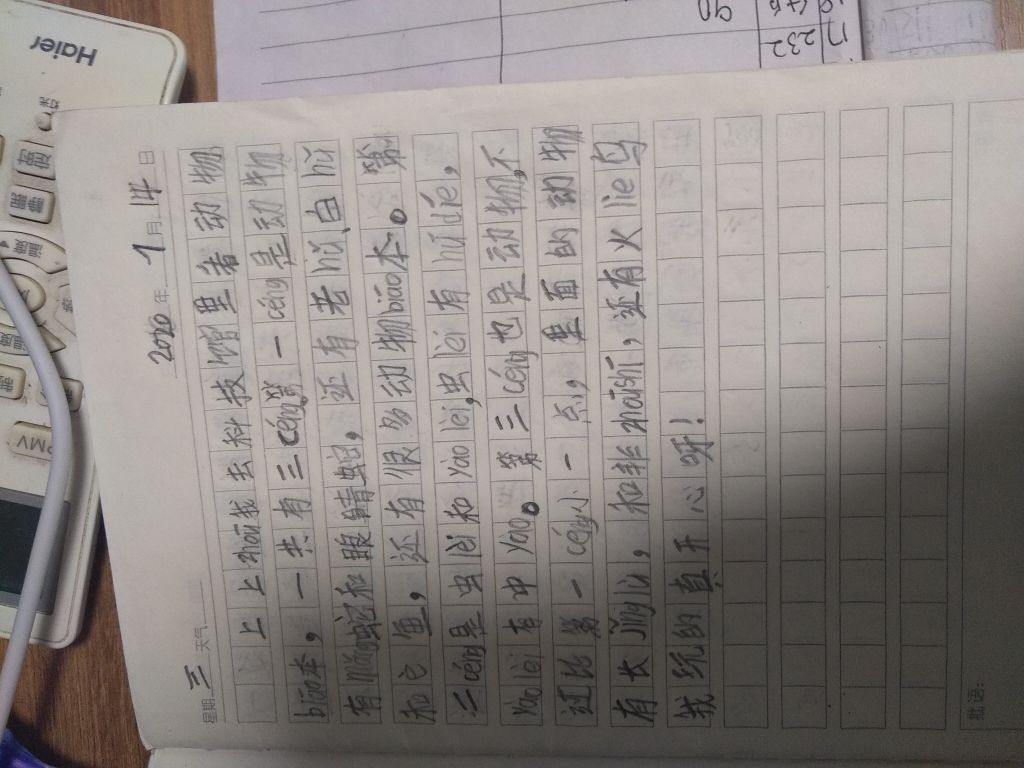 星期 三 天气 2020年 1月14日
上上zhōu我去科技馆里看动物
biāo本，一共有三céng第一céng是动物
有mǎng蛇和眼睛蛇，还有老hǔ白hǔ
和它鱼，还有很多动物biāo本。第
二céng是虫lèi和yào lèi，虫lèi有hú dié，
yào lèi有中yào。第三céng也是动物，不
过比第一céng小一点，里面的动物
有长jǐng lù，和非zhōu shī，还有火liè鸟
我玩的真开心呀！
批语:
Haier
灯光
定时
静眠
温度
PMV
232
90